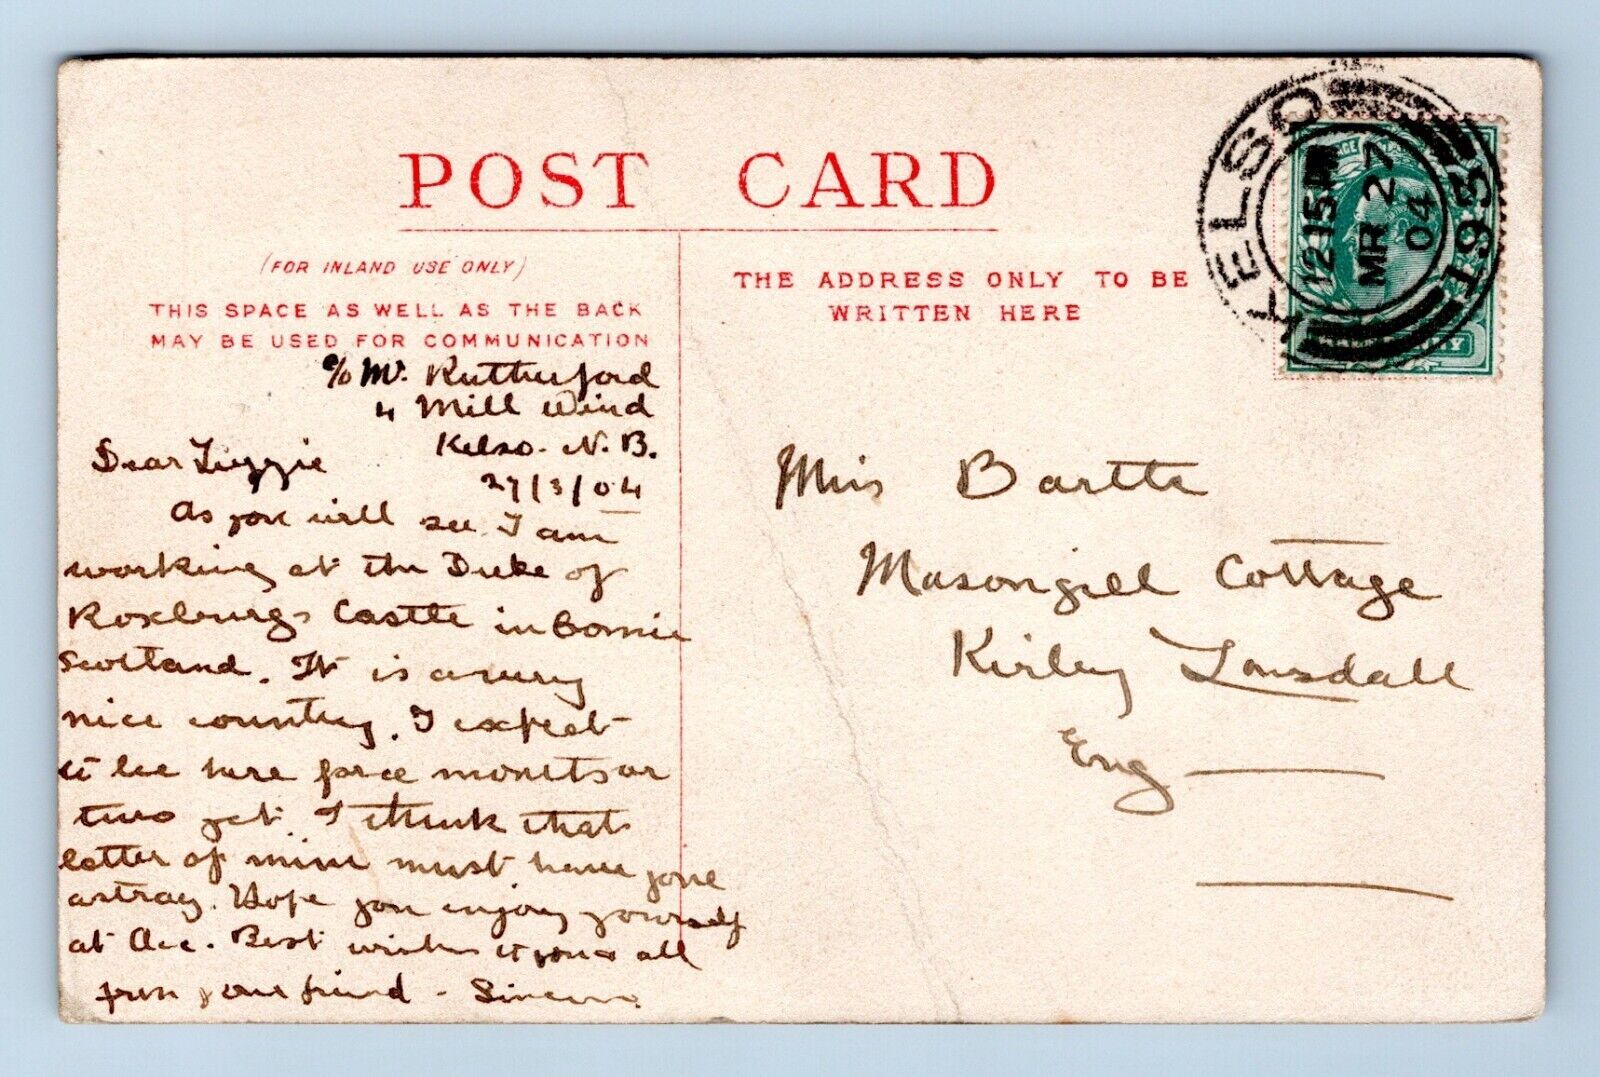 POST CARD
(FOR INLAND USE ONLY)
THIS SPACE AS WELL AS THE BACK
MAY BE USED FOR COMMUNICATION
THE ADDRESS ONLY TO BE
WRITTEN HERE
KELSO
12.15PM
MR 27
04
193
c/o Mr. Rutherford
4 Mill Wind
Kelso. N.B.
27/3/04
Dear Lizzie
As you will see I am
working at the Duke of
Roxburgs Castle in Bonnie
Scotland. It is a very
nice country. I expect
to be here for a month or
two yet. I think that
letter of mine must have gone
astray. Hope you enjoy yourself
at Acc. Best wishes to you all
from your friend -
Miss Bartta
Masongill Cottage
Kirby Lonsdall
Eng